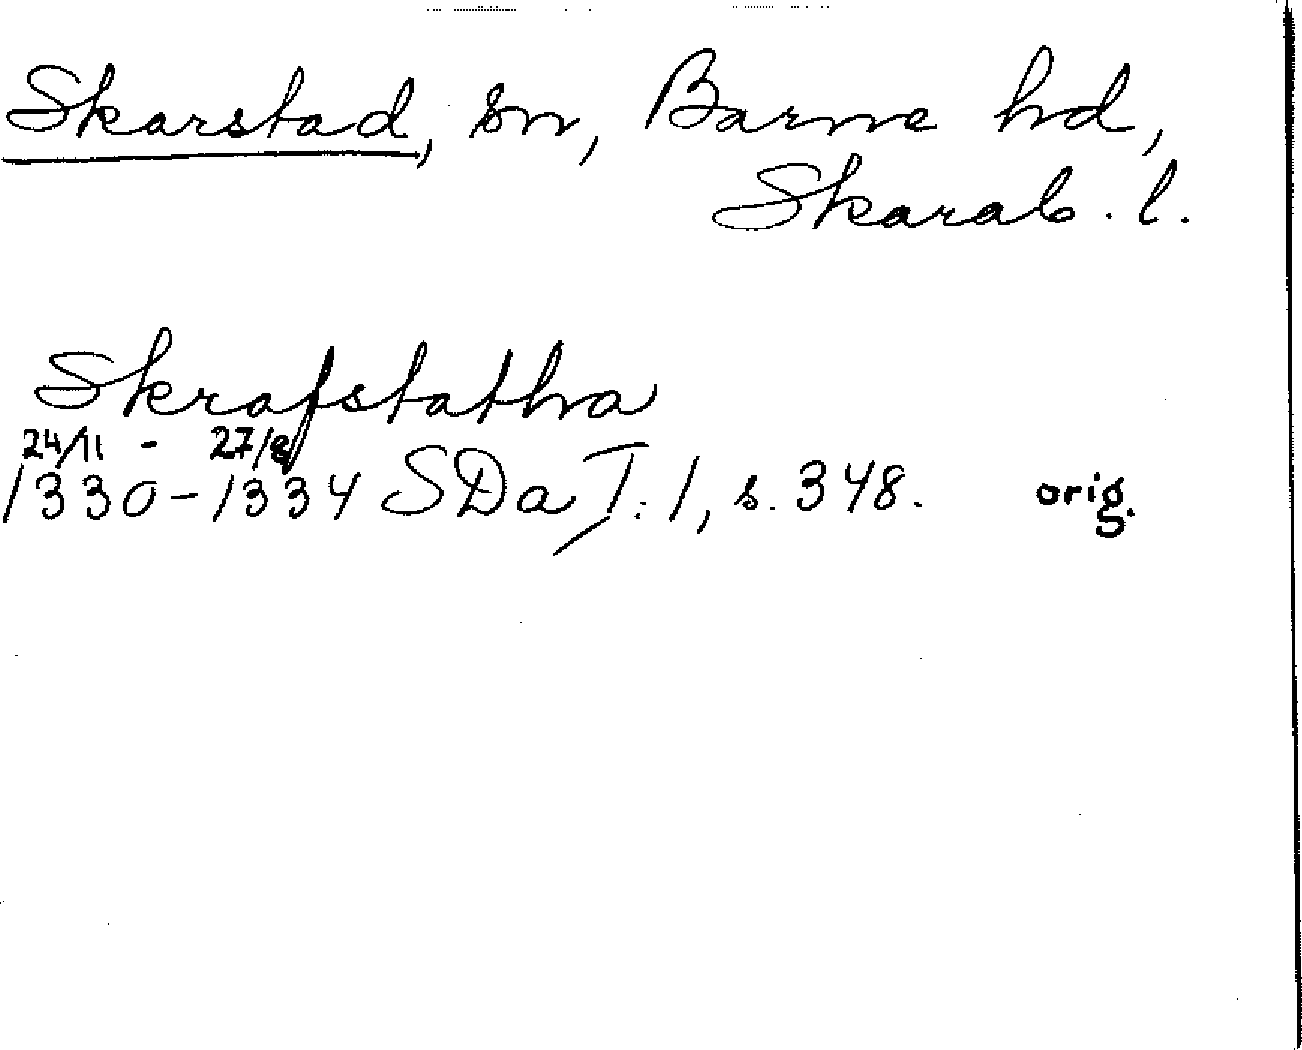 Skarstad, sn, Barne hd,
Skarab. l.
Skrafstathra
24/11 - 27/8
1330-1334 SDa T. 1, s. 348. orig.